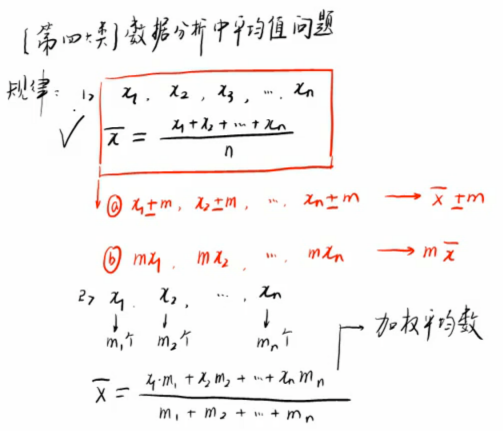 [第四类]数据分析中平均值问题
规律: 1> x₁, x₂, x₃, … xₙ
x̄ = (x₁+x₂+…+xₙ)/n
ⓐ x₁±m, x₂±m, … xₙ±m → x̄±m
ⓑ mx₁, mx₂, … mxₙ → mx̄
2> x₁, x₂, … xₙ
↓ ↓ ↓
m₁个 m₂个 mₙ个 → 加权平均数
x̄ = (x₁·m₁+x₂m₂+…+xₙmₙ)/(m₁+m₂+…+mₙ)